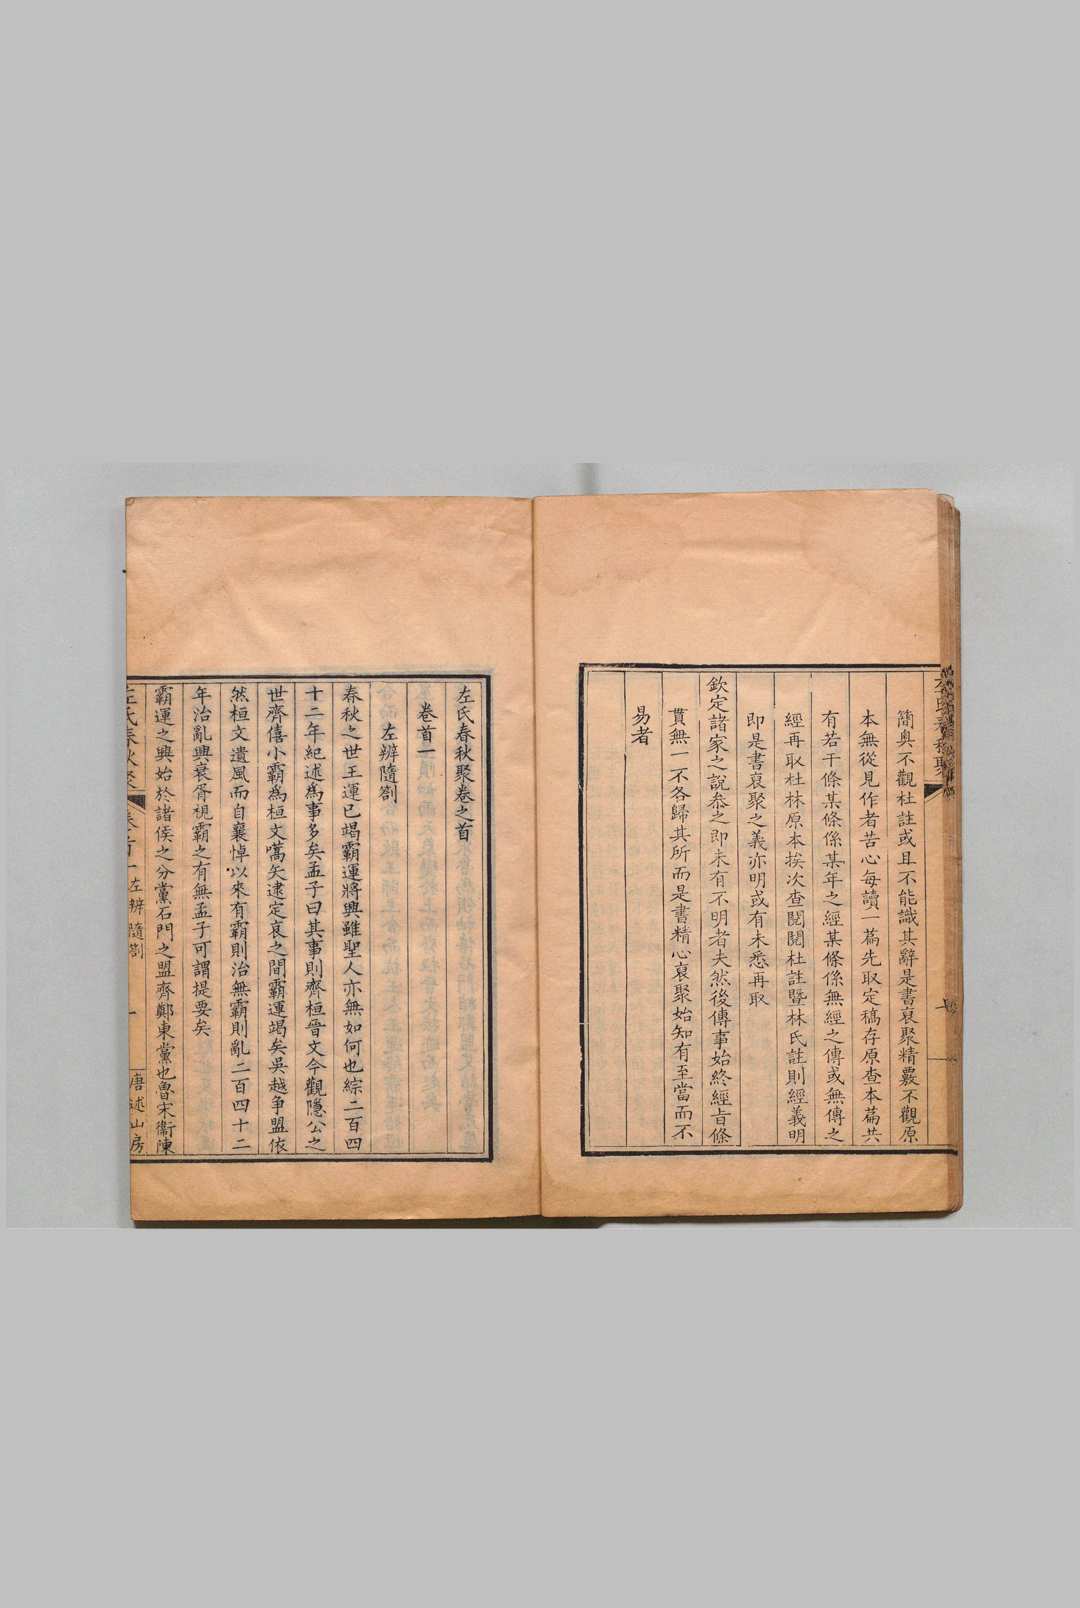 簡奧不觀杜註或且不能識其辭是書裒聚精覈不觀原
本無從見作者苦心每讀一篇先取定稿存原查本篇共
有若干條某條係某年之經某條係無經之傳或無傳之
經再取杜林原本挨次查閱閱杜註暨林氏註則經義明
即是書裒聚之義亦明或有未悉再取
欽定諸家之說叅之即未有不明者夫然後傳事始終經旨條
貫無一不各歸其所而是書精心裒聚始知有至當而不
易者
左氏春秋聚卷之首
卷首一
左辨隨劄
春秋之世王運已竭霸運將興雖聖人亦無如何也綜二百四
十二年紀述為事多矣孟子曰其事則齊桓晉文今觀隱公之
世齊僖小霸為桓文嚆矢逮定哀之間霸運竭矣吳越争盟依
然桓文遺風而自襄悼以來有霸則治無霸則亂二百四十二
年治亂興衰胥視霸之有無孟子可謂提要矣
霸運之興始於諸侯之分黨石門之盟齊鄭東黨也魯宋衞陳
左氏春秋聚
卷首一
左辨隨劄
一
唐述山房